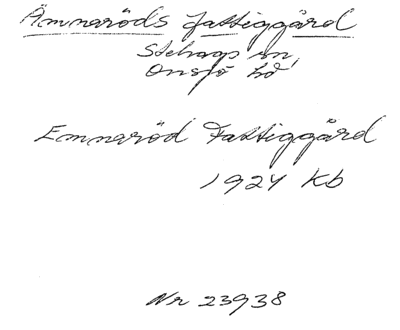 Ämnaröds fattiggård
Stehags sn,
Onsjö hd
Emnaröd Fattiggård
1924 Kb
Nr 23938